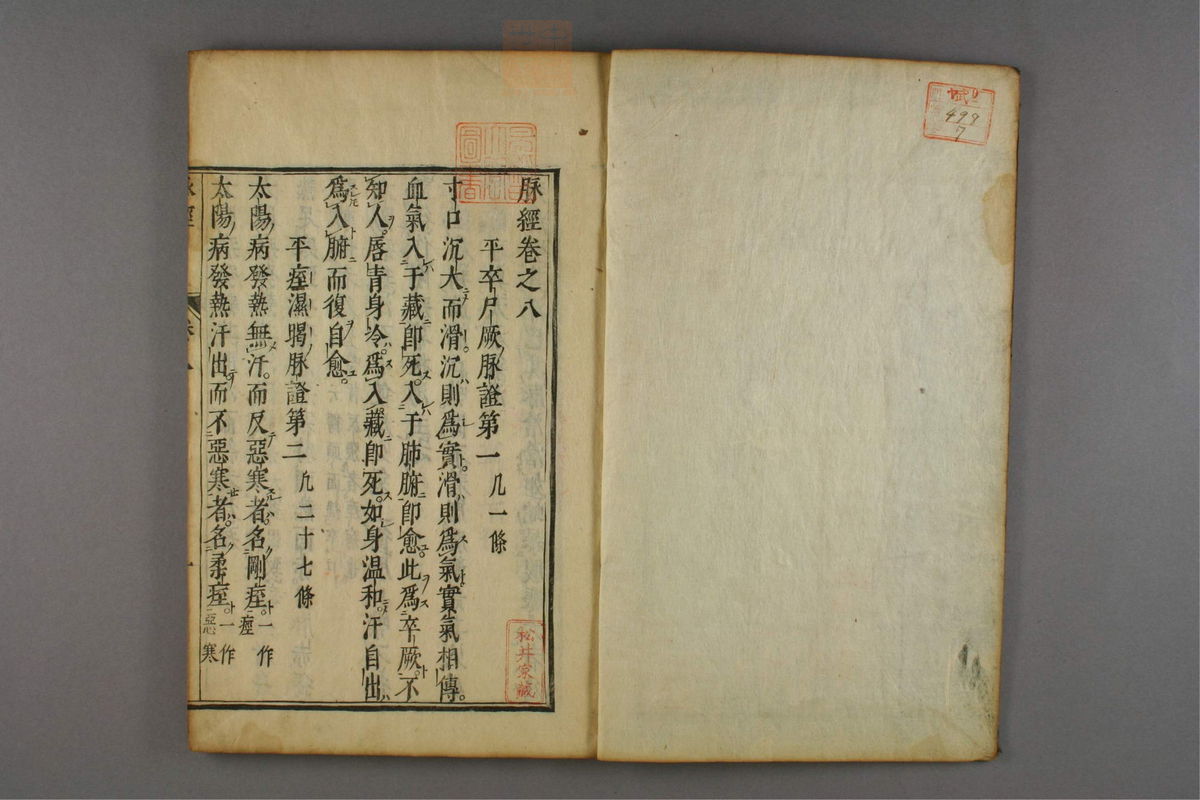 脉經卷之八
平卒尸厥脉證第一 凡一條
寸口沉大而滑沉則爲實滑則爲氣實氣相傳
血氣入于藏卽死入于肺腑卽愈此爲卒厥不
知人唇青身冷爲入藏卽死如身温和汗自出
爲入腑而復自愈
平痓濕暍脉證第二 凡二十七條
太陽病發熱無汗而反惡寒者名剛痓 一作痙
太陽病發熱汗出而不惡寒者名柔痓 一作惡寒
499
7
松井家藏